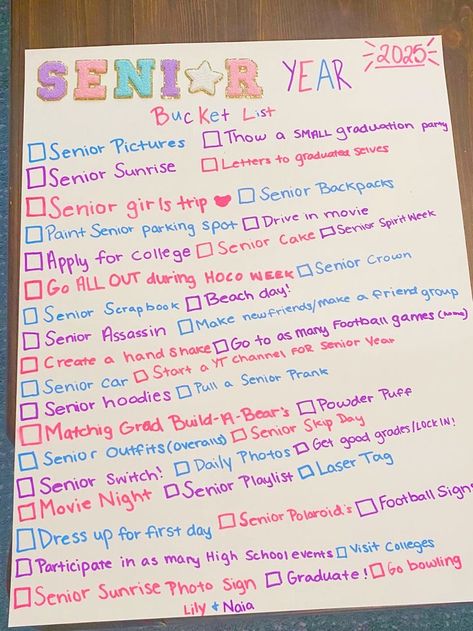 SENIOR YEAR 2025
Bucket List
Senior Pictures Thow a SMALL graduation party
Senior Sunrise Letters to graduated selves
Senior girls trip Senior Backpacks
Paint Senior parking spot Drive in movie
Apply for college Senior Cake Senior Spirit Week
Go ALL OUT during HOCO WEEK Senior Crown
Senior Scrapbook Beach day!
Senior Assassin Make new friends/make a friend group
Create a hand shake Go to as many Football games (home)
Senior car Start a YT Channel FOR Senior Year
Senior hoodies Pull a Senior Prank
Matchig Grad Build-A-Bear's Powder Puff
Senior Outfits (overalls) Senior Skip Day
Senior Switch! Daily Photos Get good grades/LOCK IN!
Movie Night Senior Playlist Laser Tag
Dress up for first day Senior Polaroid's Football Signs
Participate in as many High School events Visit Colleges
Senior Sunrise Photo Sign Graduate! Go bowling
Lily & Naia